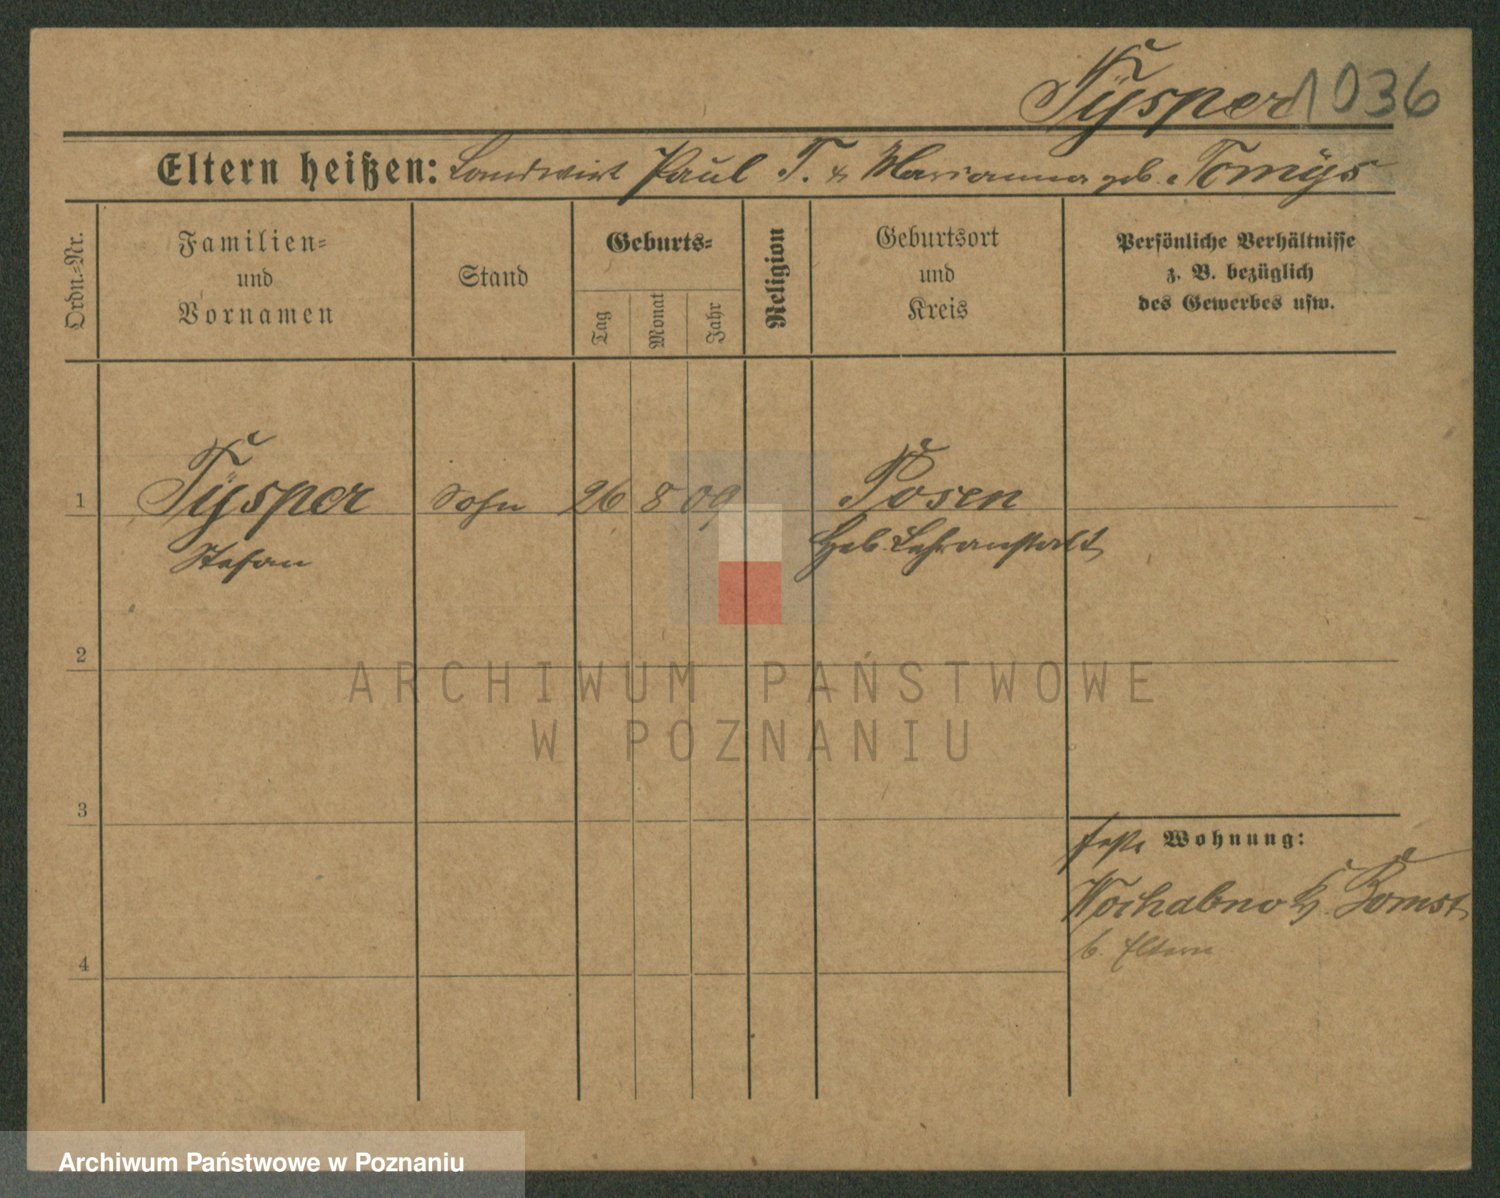 Tÿsper 1036
Eltern heißen: Landwirt Paul T. & Marianna geb. Tomÿs
Ordn.-Nr.
Familien-
und
Vornamen
Stand
Geburts-
Tag
Monat
Jahr
Religion
Geburtsort
und
Kreis
Persönliche Verhältnisse
z. B. bezüglich
des Gewerbes usw.
1 Tÿsper Sohn 26 8 09 Posen
Stefan Heb. Lehranstalt
2
ARCHIWUM PAŃSTWOWE
W POZNANIU
3
feste Wohnung:
Wochabno K. Bomst
b. Eltern
4
Archiwum Państwowe w Poznaniu